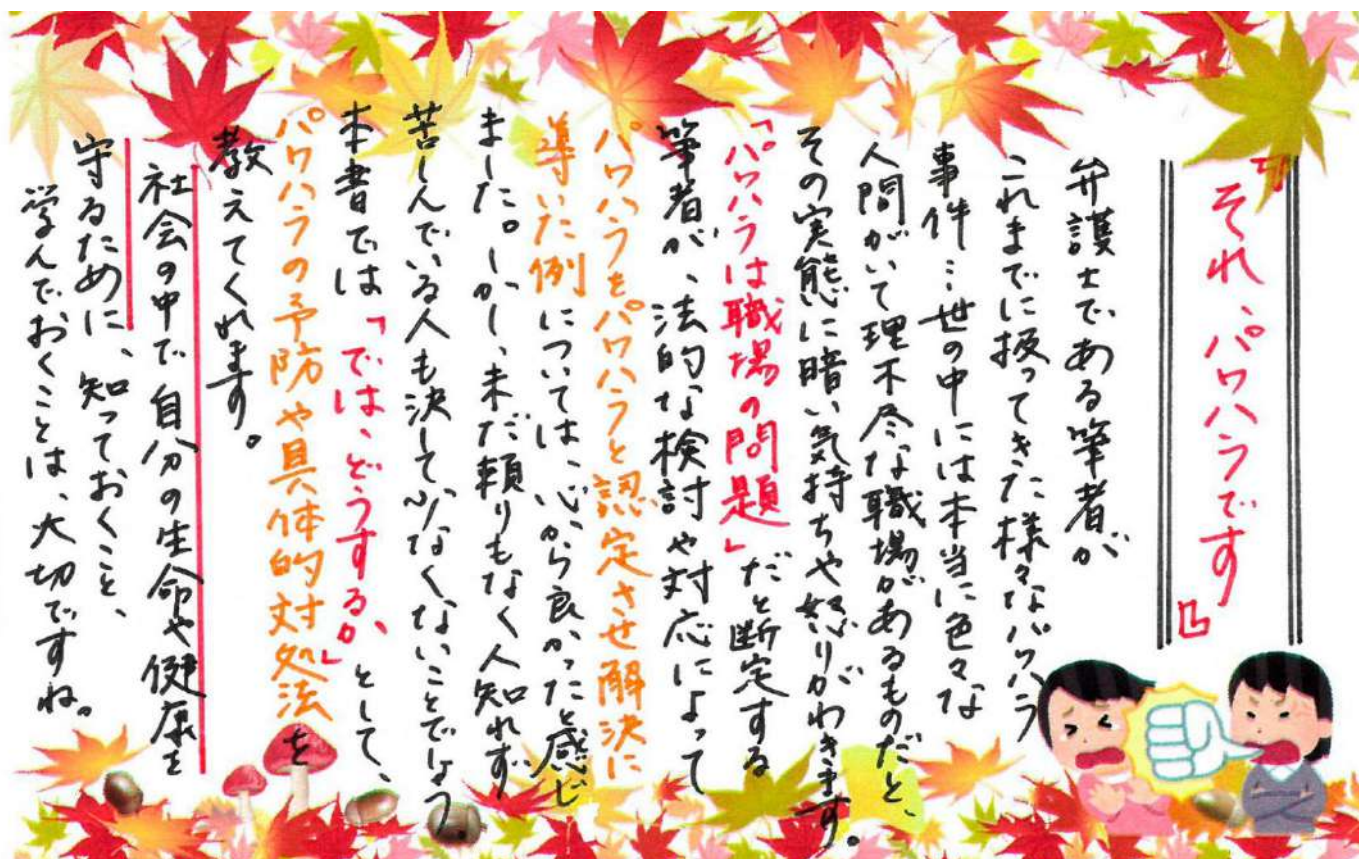 『それ、パワハラです』
弁護士である筆者が
これまでに扱ってきた様々なパワハラ
事件…世の中には本当に色々な
人間がいて理不尽な職場があるものだと、
その実態に暗い気持ちや怒りがわきます。
「パワハラは職場の問題」だと断定する
筆者が、法的な検討や対応によって
パワハラをパワハラと認定させ解決に
導いた例については、心から良かったと感じ
ました。しかし、未だ頼りもなく人知れず
苦しんでいる人も決して少なくないことでしょう
本書では「では、どうするか」として、
パワハラの予防や具体的対処法を
教えてくれます。
社会の中で自分の生命や健康を
守るために、知っておくこと、
学んでおくことは、大切ですね。